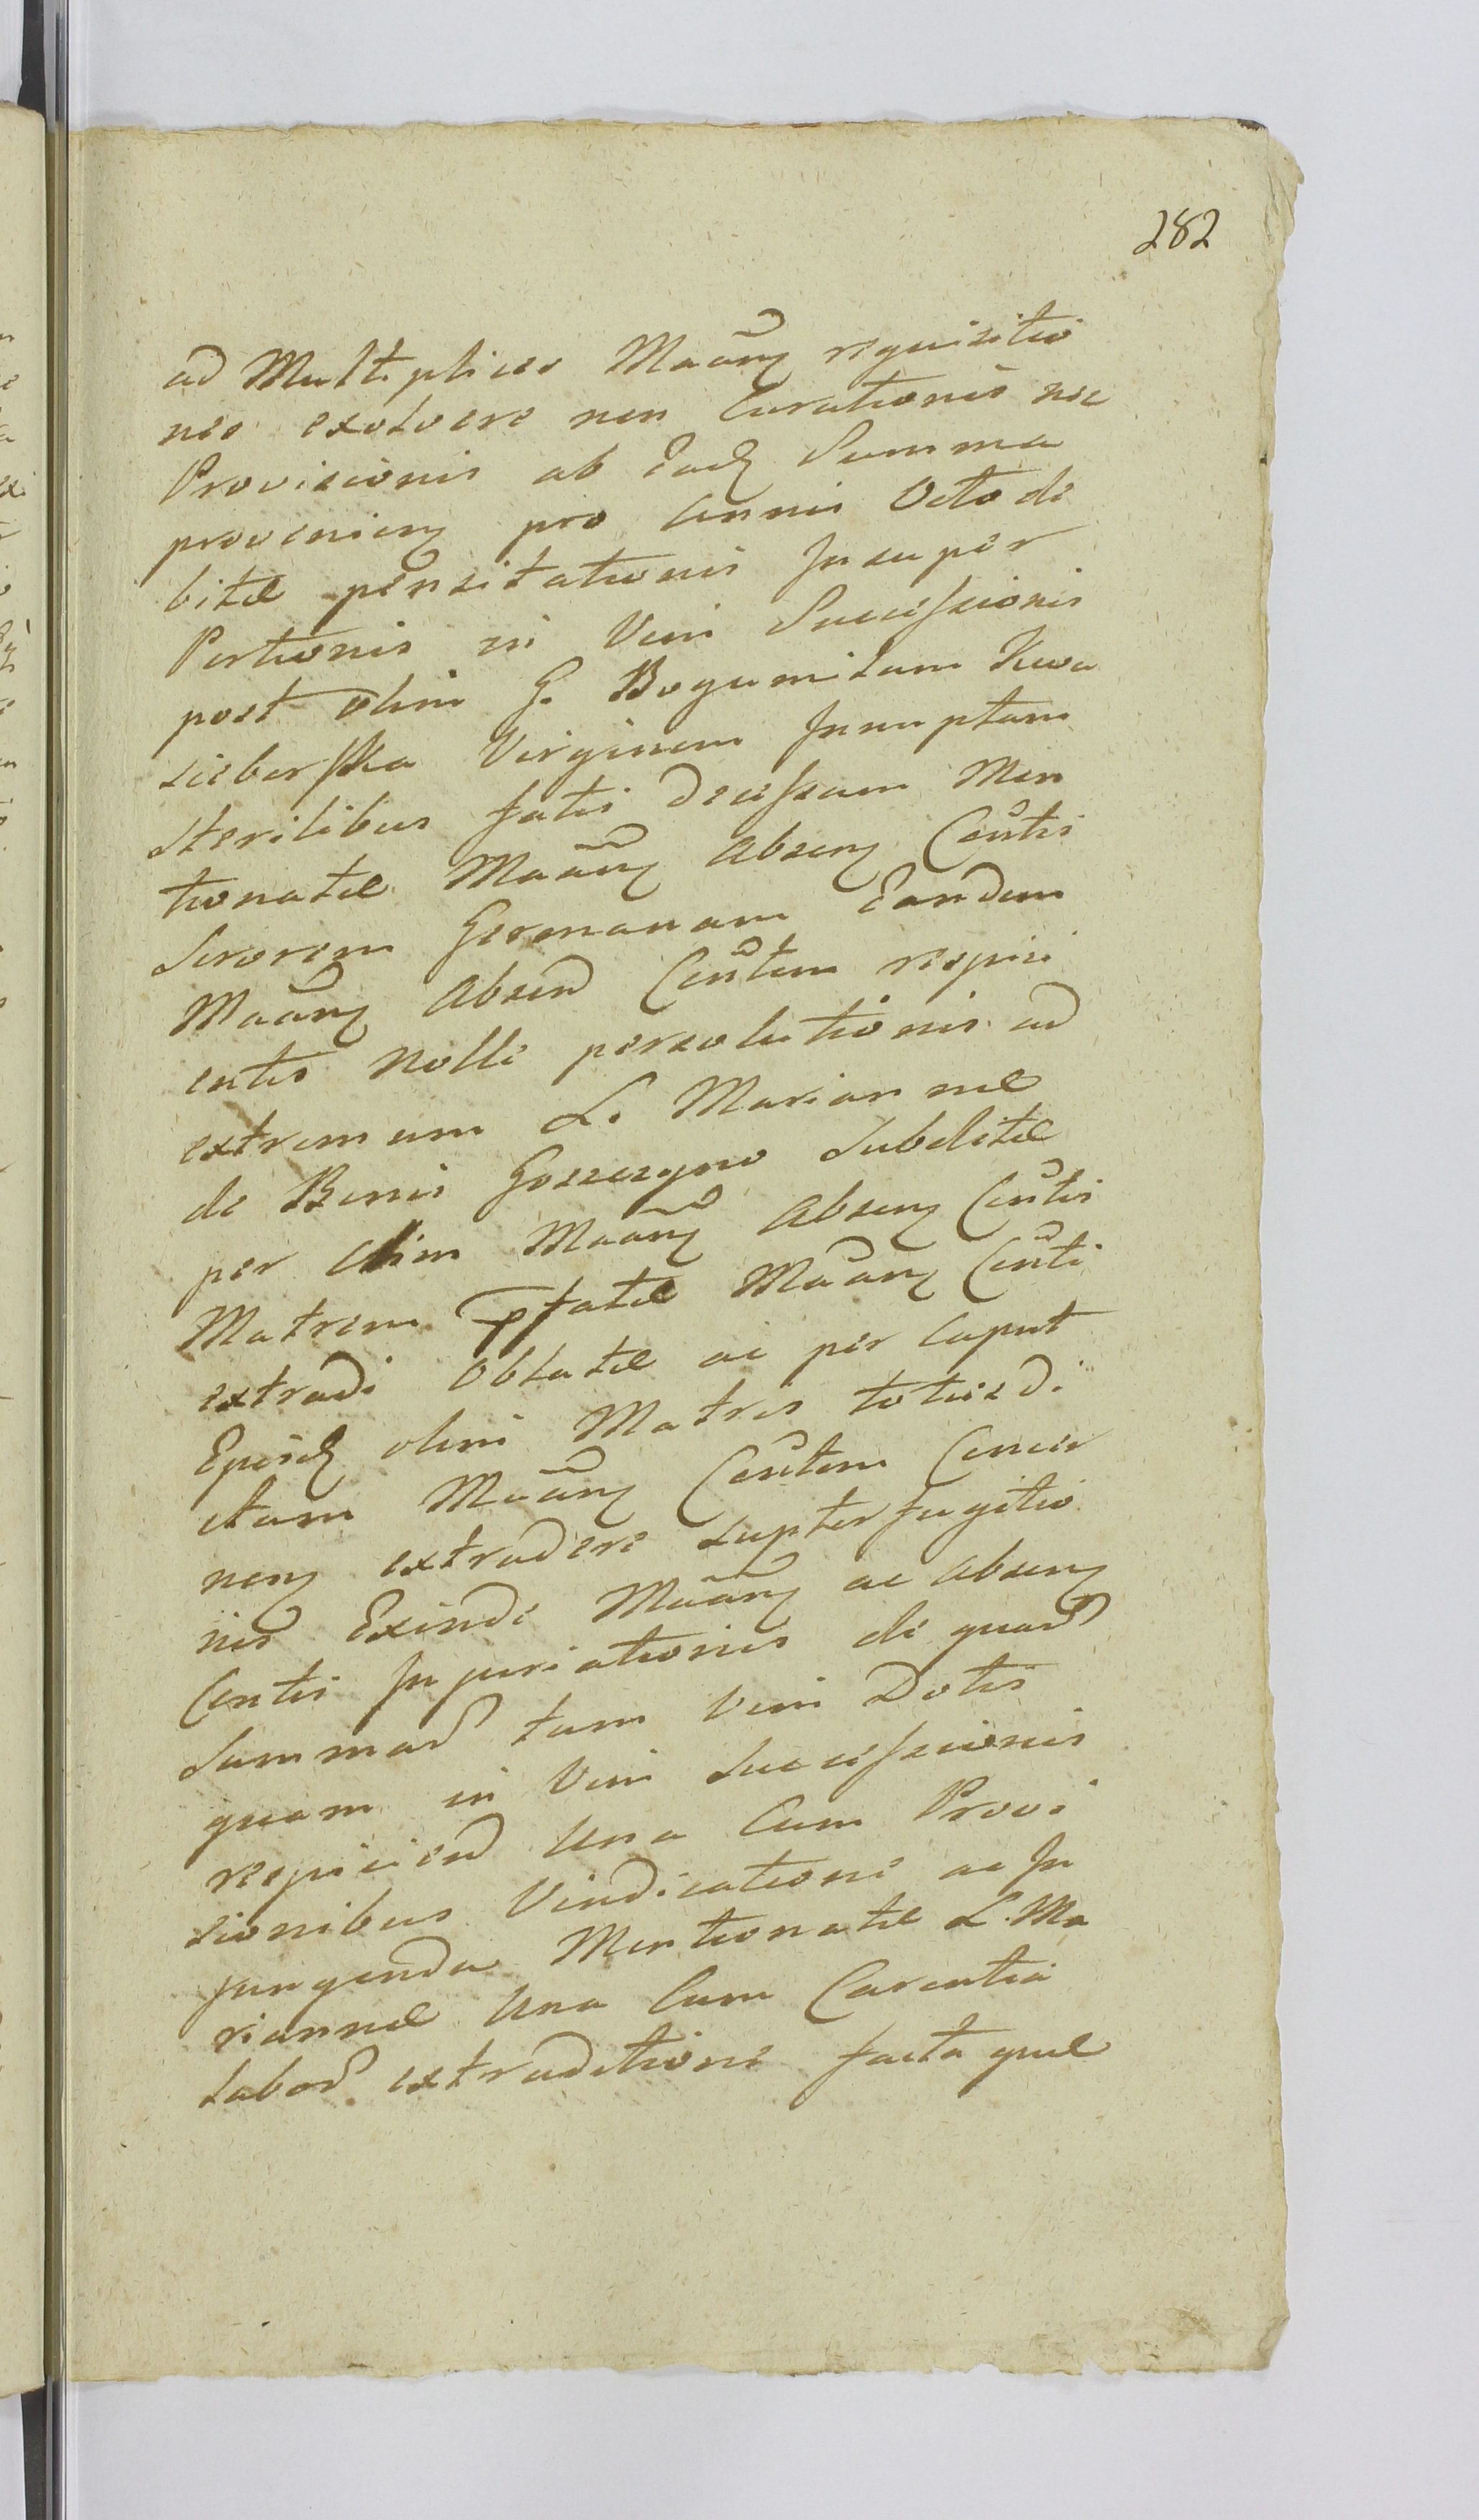 282
ad Multiplices Maãnꝫ requisitio
nes exolvere non Curationis nec
Provisionis ab Eadꝫ Summa
provenienꝫ pro Annis Octo de
bitæ pensitationis Insuper
Portionis in Vim Successionis
post olim G. Bogumilam Kwa
sieborska Virginem Innuptam
Sterilibus fatis decessam Men
tionatæ Maãnꝫ Absenꝫ Cẽntis
Sororem Germanam Eandem
Maãnꝫ Absen Cẽntem respici
entis Nolle persolutionis ad
extremum L. Mariannæ
de Bonis Subditæ
per olim Maãnꝫ Absenꝫ Cẽntis
Matrem pfatæ Maãnꝫ Cẽnti
extradi Oblatæ ac per Caput
Ejusdꝫ olim Matris totiesdi
ctam Maãnꝫ Cẽntem Concer
nenꝫ extradere supterfugitio
nis Exinde Maãnꝫ ac Absenꝫ
Centis Injuriationis de quard
Summard tam Vim Dotis
quam in Vim Successionis
respicien Una Cum Provi
sionibus Vindicatione ac In
jungenda Mentionatæ L. Ma
riannæ Una Cum Carentia
Labor extraditione facta quæ